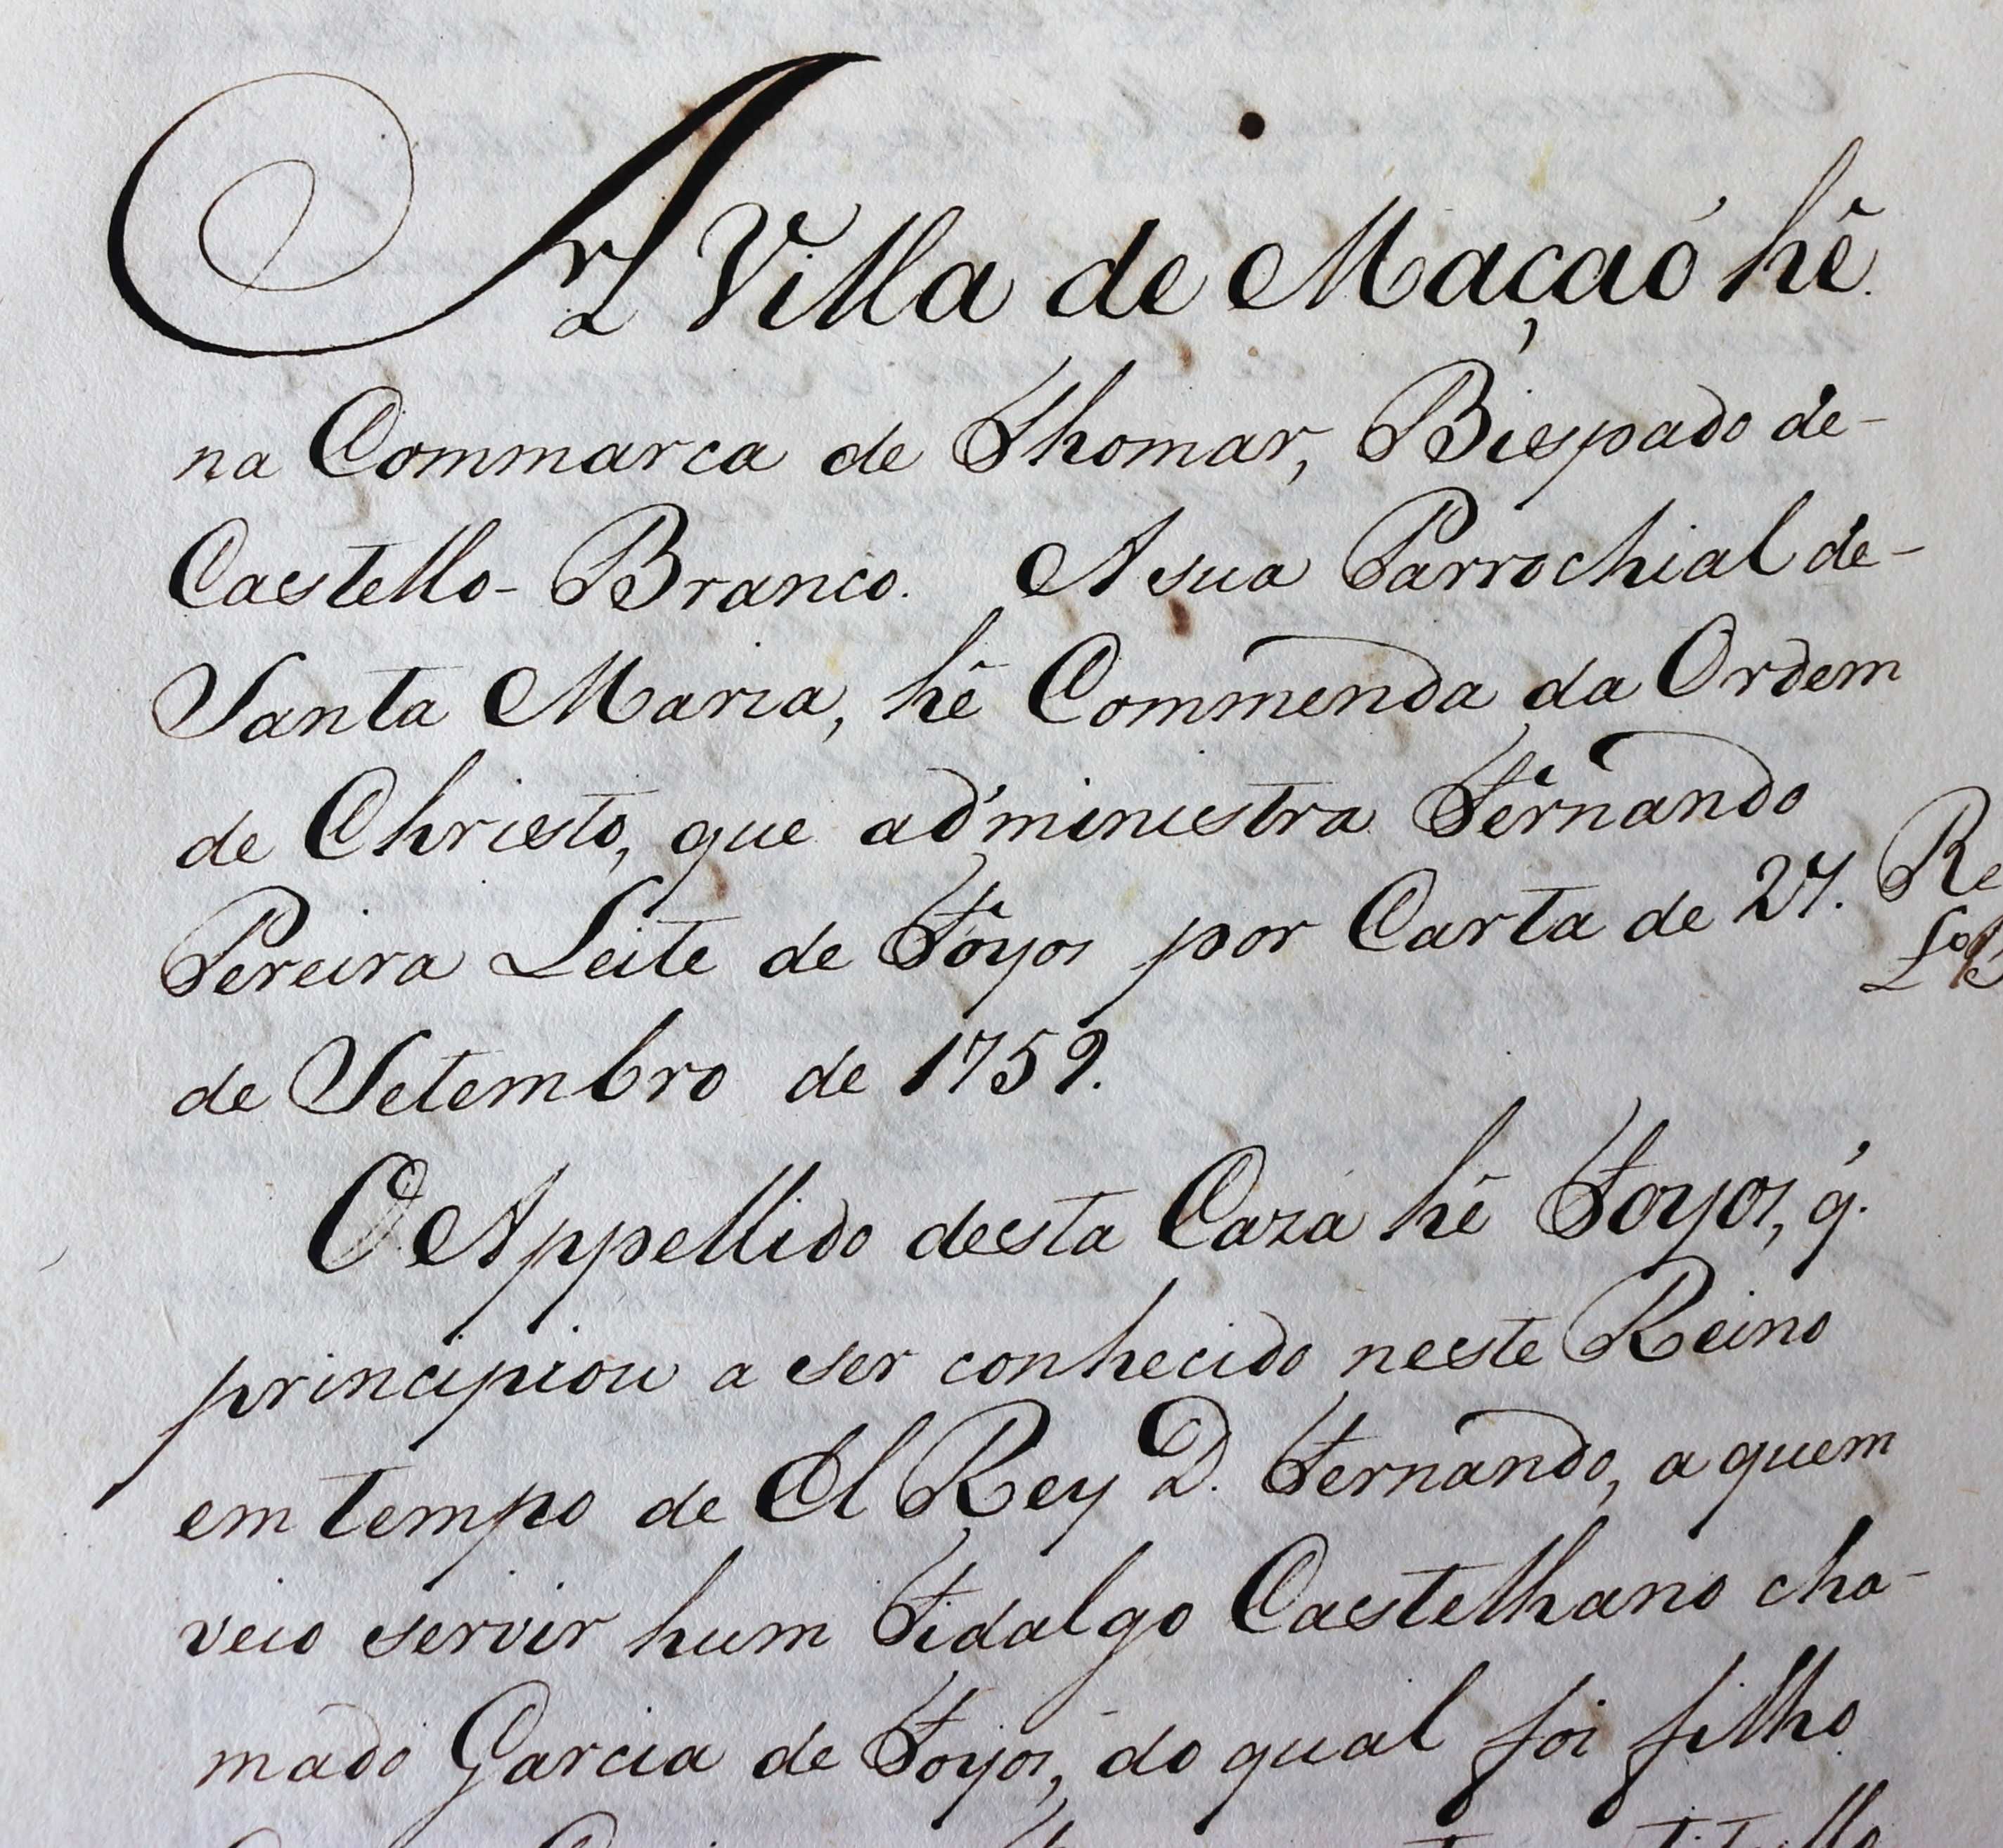 A Villa de Maçaó hê
na Commarca de Thomar, Bispado de-
Castello-Branco. A sua Parrochial de-
Santa Maria, hê Commenda da Ordem
de Christo, que administra Fernando
Pereira Leite de Foyos por Carta de 27.
de Setembro de 1759.
O Appellido desta Caza hê Foyos, q.
principiou a ser conhecido neste Reino
em tempo de El Rey D. Fernando, a quem
veio servir hum Fidalgo Castelhano cha-
mado Garcia de Foyos, do qual foi filho